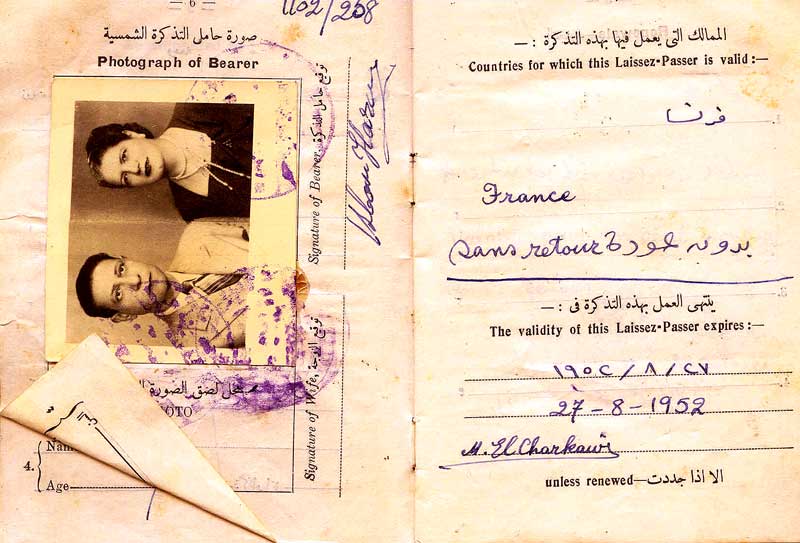 — 6 —
1102/258
صورة حامل التذكرة الشمسية
Photograph of Bearer
توقيع حامل التذكرة
Signature of Bearer,
توقيع الزوجة
Signature of Wife,
محل لصق الصورة
OTO
4.
Nam
Age
الممالك التى يعمل فيها بهذه التذكرة : —
Countries for which this Laissez-Passer is valid :—
فرنسا
France
Sans retour بدون عودة
ينتهى العمل بهذه التذكرة فى : —
The validity of this Laissez-Passer expires :—
١٩٥٢/٨/٢٧
27-8-1952
M. El Charkawi
unless renewed—الا اذا جددت